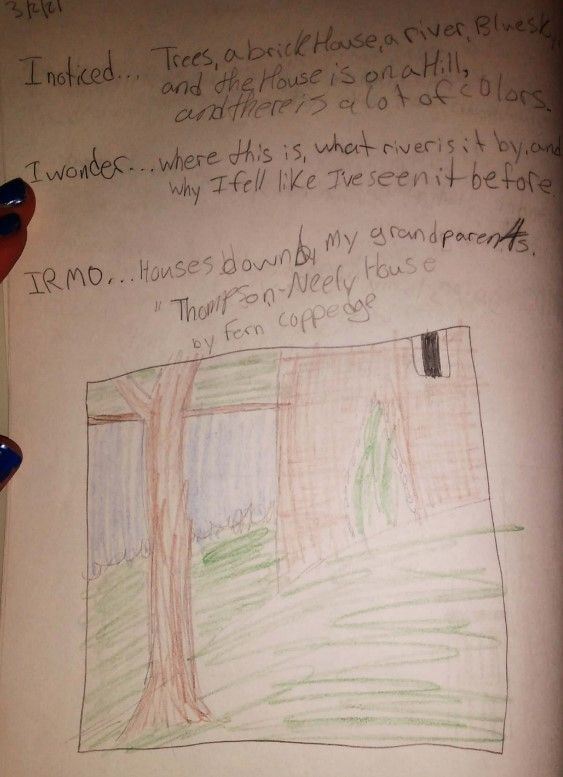 3/2/21
I noticed... Trees, a brick House, a river, Bluesky,
and the House is on a Hill,
and there is a lot of colors.
I wonder... where this is, what river is it by, and
why I fell like I've seen it before
IRMO... Houses down by my grandparents.
"Thompson-Neely House
by Fern Coppedge